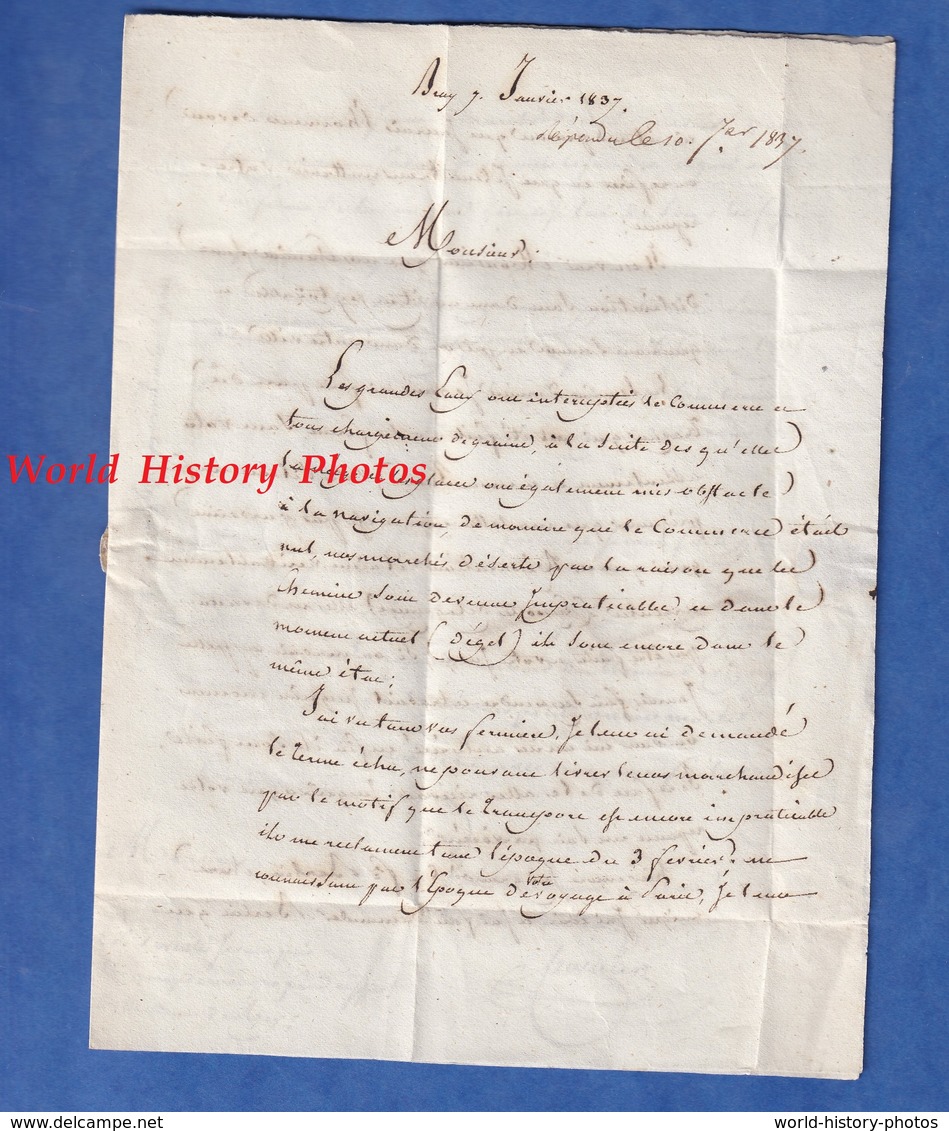 Bray 7. Janvier 1837.
répondu le 10. Jer 1837.
Monsieur;
Les grandes Eaux ont interrompües le Commerce et
tous chargemens de graine, à la Suite des qu'elles
World History Photos
glaces ont également mis obstacle
à la navigation, de manière que le Commerce étoit
nul, nos marchés déserts par la raison que les
chemins sont devenus Impraticables et dans le
moment actuel (dégel) ils sont encore dans le
même état;
J'ai vu tous vos fermiers, Je leur ai demandé
le terme échu, ne pouvant livrer leurs marchandises
par le motif que le transport est encore impraticable
ils me reclament tous l'époque du 3 février: ne
connaissant pas l'Epoque de votre voyage à Paris, Je leur
world-history-photos
world-history-photos